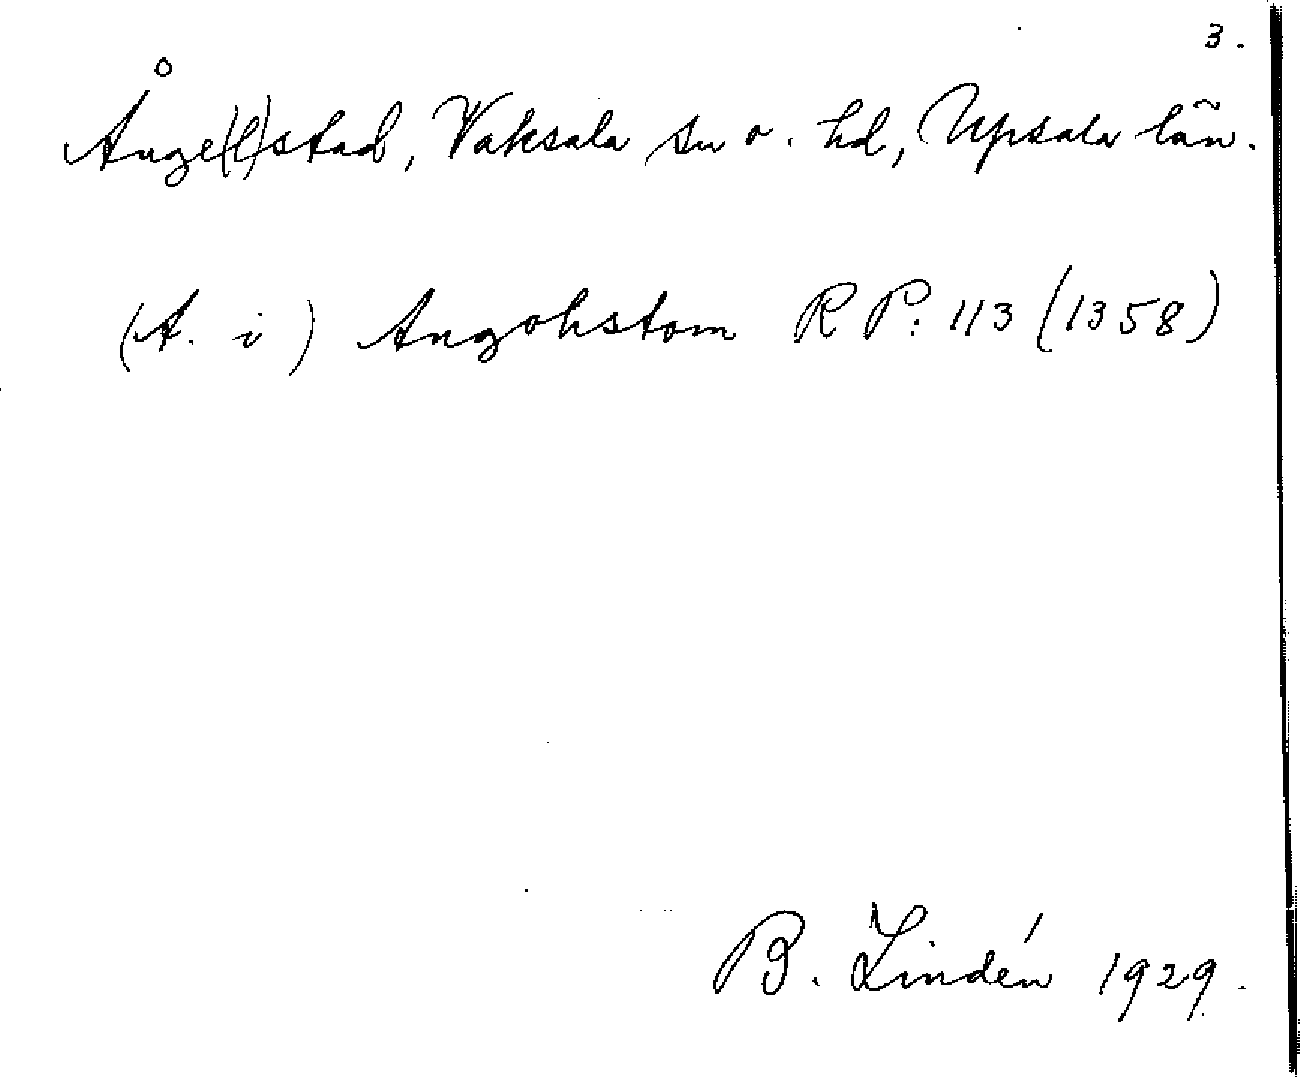 3.
Ånge(l)stad, Vaksala sn o. hd, Upsala län.
(A. i) Angohstom RP: 113 (1358)
B. Lindén 1929.